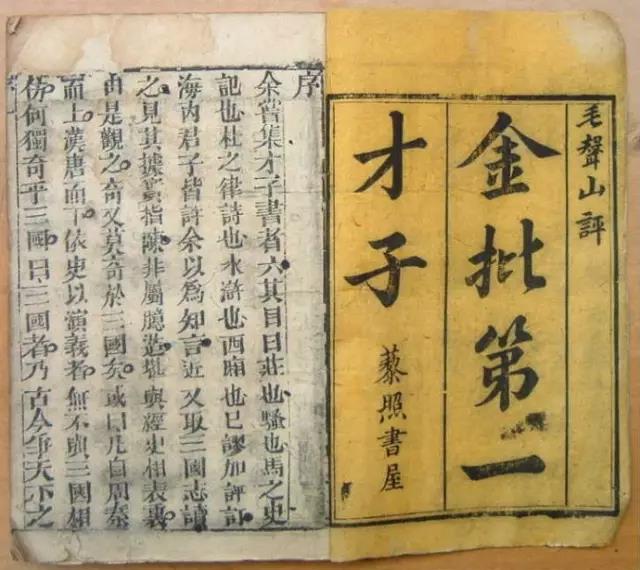 毛聲山評
金批第一
才子
藜照書屋
序
余嘗集才子書者六其目曰莊也騷也馬之史
記也杜之律詩也水滸也西廂也已謬加評訂
海内君子皆許余以為知言近又取三國志讀
之見其據實指陳非屬臆造堪與經史相表裏
由是觀之奇又莫奇於三國矣或曰凡自周秦
而上漢唐而下依史以演義者無不與三國相
仿何獨奇乎三國曰三國者乃古今爭天下之